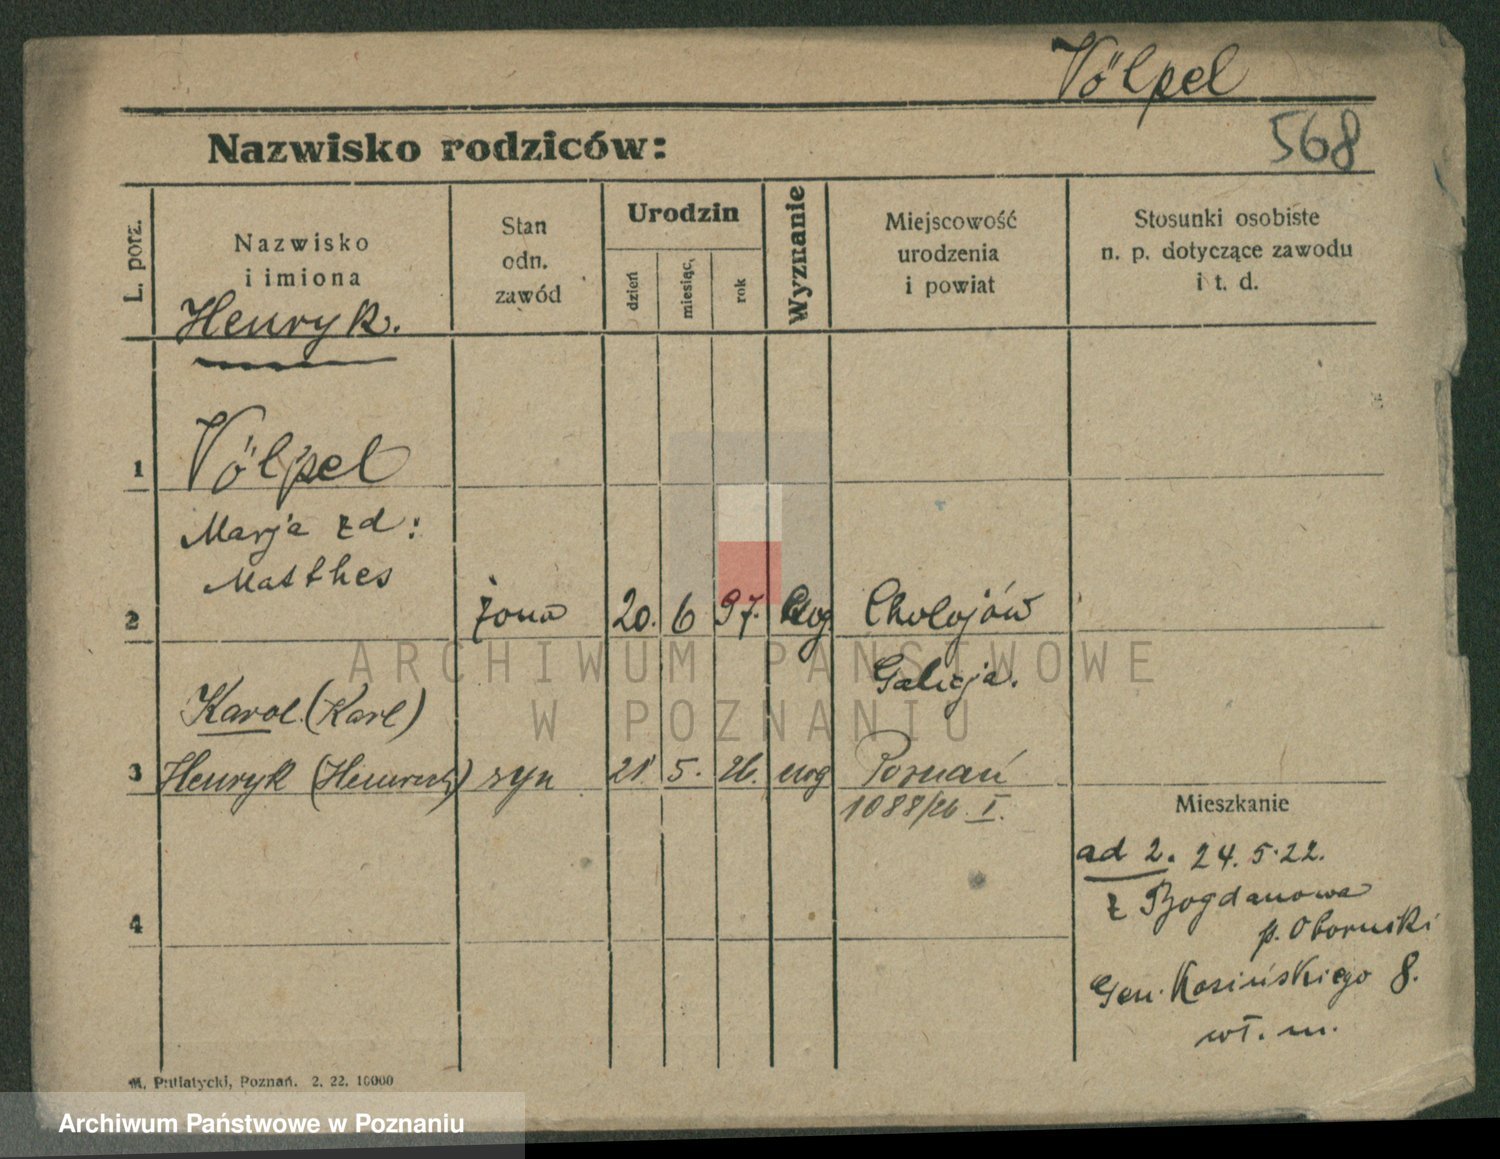 Völpel
Nazwisko rodziców:
568
L. porz.
Nazwisko
i imiona
Stan
odn.
zawód
Urodzin
dzień
miesiąc,
rok
Wyznanie
Miejscowość
urodzenia
i powiat
Stosunki osobiste
n. p. dotyczące zawodu
i t. d.
Henryk.
1
Völpel
Marja zd:
Matthes
2 żona 20. 6 97. Chołojów
Galicja.
Karol (Karl)
3 Henryk (Heinrich) syn 21 5. 26. ewg Poznań
1088/26 I.
Mieszkanie
ad 2. 24. 5. 22.
z Bogdanowa
p. Obornski
4
Gen. Kosińskiego 8.
wł. m.
M. Putiatycki, Poznań. 2. 22. 10000
ARCHIWUM PAŃSTWOWE
W POZNANIU
Archiwum Państwowe w Poznaniu